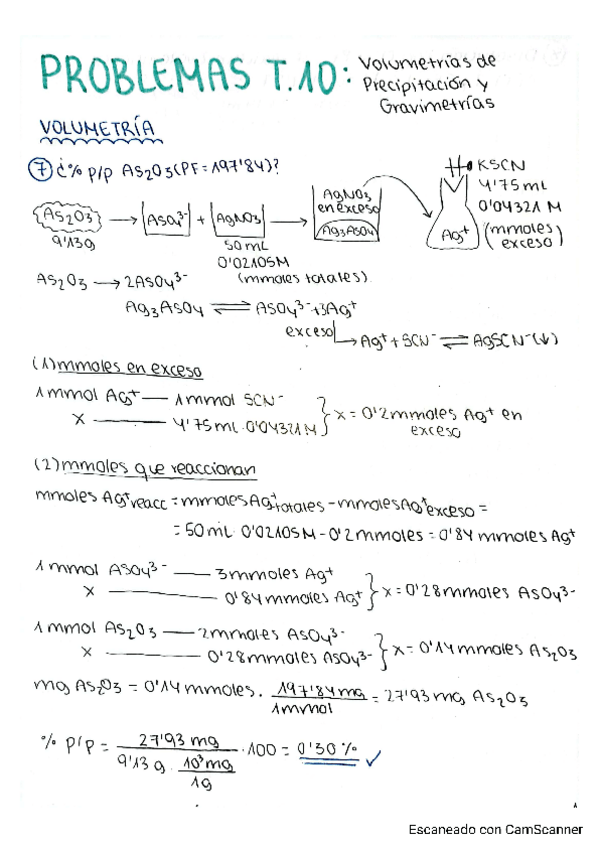 PROBLEMAS T.10: Volumetrías de
Precipitación y
Gravimetrías
VOLUMETRÍA
⑦ ¿% p/p As2O3 (PF=197'84)?
As2O3 → AsO4³⁻ + AgNO3 →
9'13g
50 mL
0'02105M
(mmoles totales)
AgNO3
en exceso
Ag3AsO4
Ag⁺
KSCN
4'75mL
0'04321 M
(mmoles
exceso)
As2O3 → 2AsO4³⁻
Ag3AsO4 ⇌ AsO4³⁻+3Ag⁺
exceso↳Ag⁺+SCN⁻ ⇌ AgSCN⁻(↓)
(1) mmoles en exceso
1 mmol Ag⁺ — 1 mmol SCN⁻
x ——— 4'75mL·0'04321M } x = 0'2mmoles Ag⁺ en
exceso
(2) mmoles que reaccionan
mmoles Ag⁺reacc = mmoles Ag⁺totales - mmoles Ag⁺exceso =
= 50mL·0'02105M - 0'2 mmoles = 0'84 mmoles Ag⁺
1 mmol AsO4³⁻ — 3mmoles Ag⁺
x ——— 0'84mmoles Ag⁺ } x = 0'28mmoles AsO4³⁻
1 mmol As2O3 — 2mmoles AsO4³⁻
x ——— 0'28mmoles AsO4³⁻ } x = 0'14mmoles As2O3
mg As2O3 = 0'14 mmoles · 197'84 mg / 1mmol = 27'93 mg As2O3
% p/p = 27'93 mg / 9'13 g · 10³mg / 1g · 100 = 0'30 % ✓
1
Escaneado con CamScanner